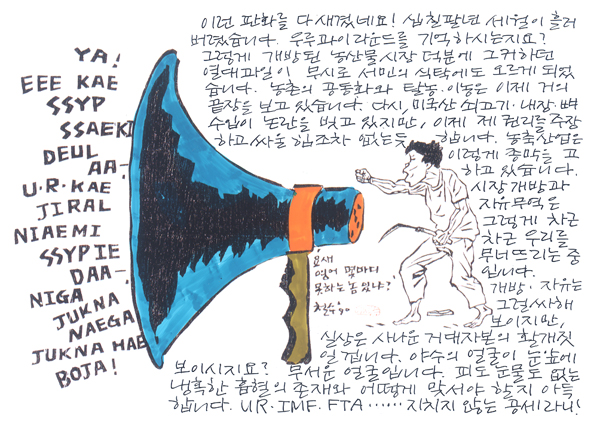 YA!
EEE KAE
SSYP
SSAEKI
DEUL
AA-
U·R·KAE
JIRAL
NIAEMI
SSYPIE
DAA-
NIGA
JUKNA
NAEGA
JUKNA HAE
BOJA!
요새
영어 몇마디
못하는 놈 있냐?
철수 90
이런 판화를 다 새겼네요! 십칠팔년 세월이 흘러
버렸습니다. 우루과이라운드를 기억하시는지요?
그렇게 개방된 농산물시장 덕분에 그 귀하던
열대과일이 무시로 서민의 식탁에도 오르게 되었
습니다. 농촌의 공동화와 탈농·이농은 이제 거의
끝장을 보고 있습니다. 다시, 미국산 쇠고기·내장·뼈
수입이 논란을 빚고 있지만, 이제 제 권리를 주장
하고 싸울 힘조차 없는 듯 합니다. 농축산업은
이렇게 종막을 고
하고 있습니다.
시장개방과
자유무역은
그렇게 차근
차근 우리를
무너뜨리는 중
입니다.
개방·자유는
그럴싸해
보이지만,
실상은 사나운 거대자본의 활개짓
일겁니다. 야수의 얼굴이 눈앞에
보이시지요? 무서운 얼굴입니다. 피도 눈물도 없는
냉혹한 흡혈의 존재와 어떻게 맞서야 할지 아득
합니다. UR·IMF·FTA …… 지치지 않는 공세라니!